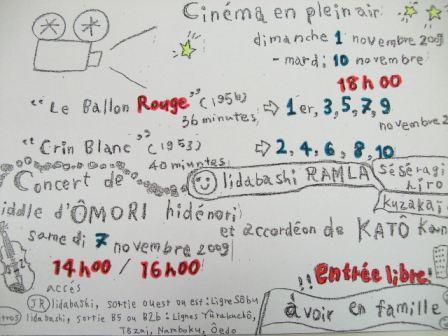 Cinéma en plein air
dimanche 1 novembre 2009
- mardi 10 novembre
18h00
"Le Ballon Rouge" (1956)
36 minutes
⇨ 1er, 3, 5, 7, 9
novembre 2
"Crin Blanc" (1953)
40 minutes
⇨ 2, 4, 6, 8, 10
Concert de
iddle d'ÔMORI hidénori
Iidabashi RAMLA
séséragi
hiro
kuzakai
et accordéon de KATÔ Kan
samedi 7
novembre 2009
14h00 / 16h00
!!entrée libre!
accés
à voir en famille
JR Iidabashi, sortie ouest ou est: Ligne Sôbu
Iidabashi, sortie B5 ou B2b: Lignes Yûrakuchô,
Tôzai, Namboku, Ôedo